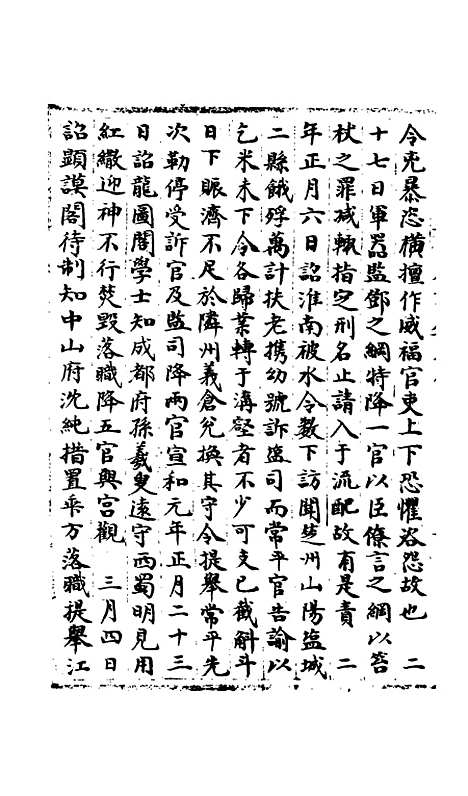 令兇暴恣橫擅作威福官吏上下恐懼咨怨故也　二
十七日軍器監鄧之綱特降一官以臣僚言之綱以笞
杖之罪减輒指定刑名止請入于流配故有是責　二
年正月六日詔淮南被水令數下訪聞楚州山陽鹽城
二縣餓殍萬計扶老攜幼號訴監司而常平官告諭以
乞米未下令各歸業轉于溝壑者不少可支已截斛斗
日下賑濟不足於隣州義倉兌換其守令提舉常平先
次勒停受訴官及監司降兩官宣和元年正月二十三
日詔龍圖閣學士知成都府孫羲叟遠守西蜀明見用
紅繖迎神不行焚毀落職降五官與宮觀　三月四日
詔顯謨閣待制知中山府沈純措置乖方落職提舉江